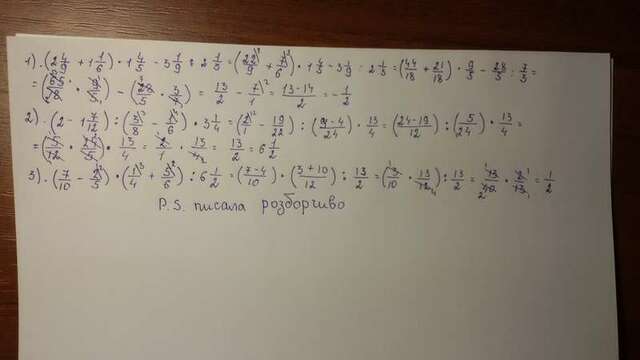 1). (2 4/9 + 1 1/6) · 1 4/5 - 3 1/9 : 2 1/3 = (22/9 + 7/6) · 1 4/5 - 3 1/9 : 2 1/3 = (44/18 + 21/18) · 9/5 - 28/9 : 7/3 =
= (65/18 · 9/5) - (28/9 · 3/7) = 13/2 - 7/1 = 13-14/2 = - 1/2
2). (2 - 1 7/12) : (3/8 - 1/6) · 3 1/4 = (2/1 - 19/12) : (9-4/24) · 13/4 = (24-19/12) : (5/24) · 13/4 =
= (5/12 · 24/5) · 13/4 = 2/1 · 13/4 = 13/2 = 6 1/2
3). (7/10 - 2/5) · (1/4 + 5/6) : 6 1/2 = (7-4/10) · (3+10/12) : 13/2 = (3/10 · 13/12) : 13/2 = 13/40 · 2/13 = 1/2
P.S. писала розборчиво